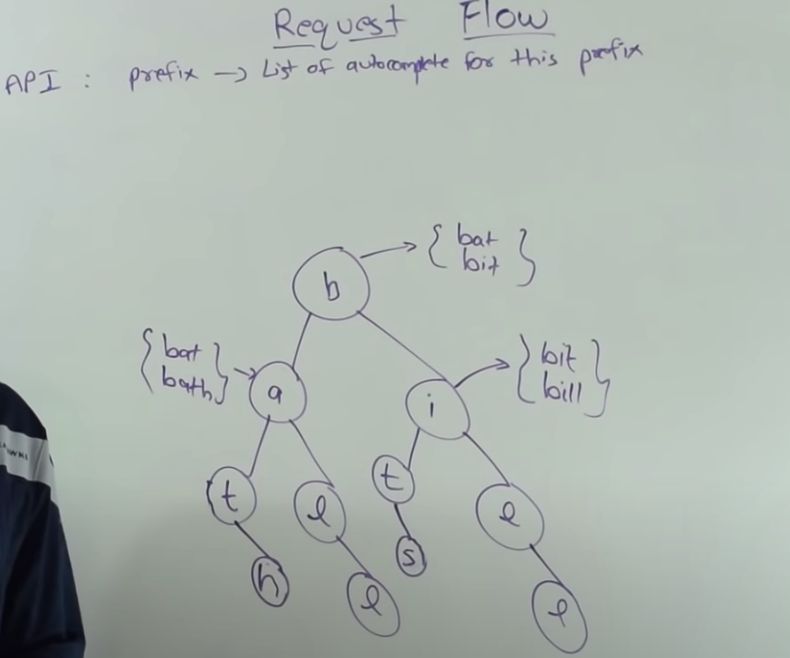 Request Flow
API : prefix → List of autocomplete for this prefix
b → { bat
bit }
{ bat
bath } → a
i → { bit
bill }
t
l
t
l
h
l
s
l